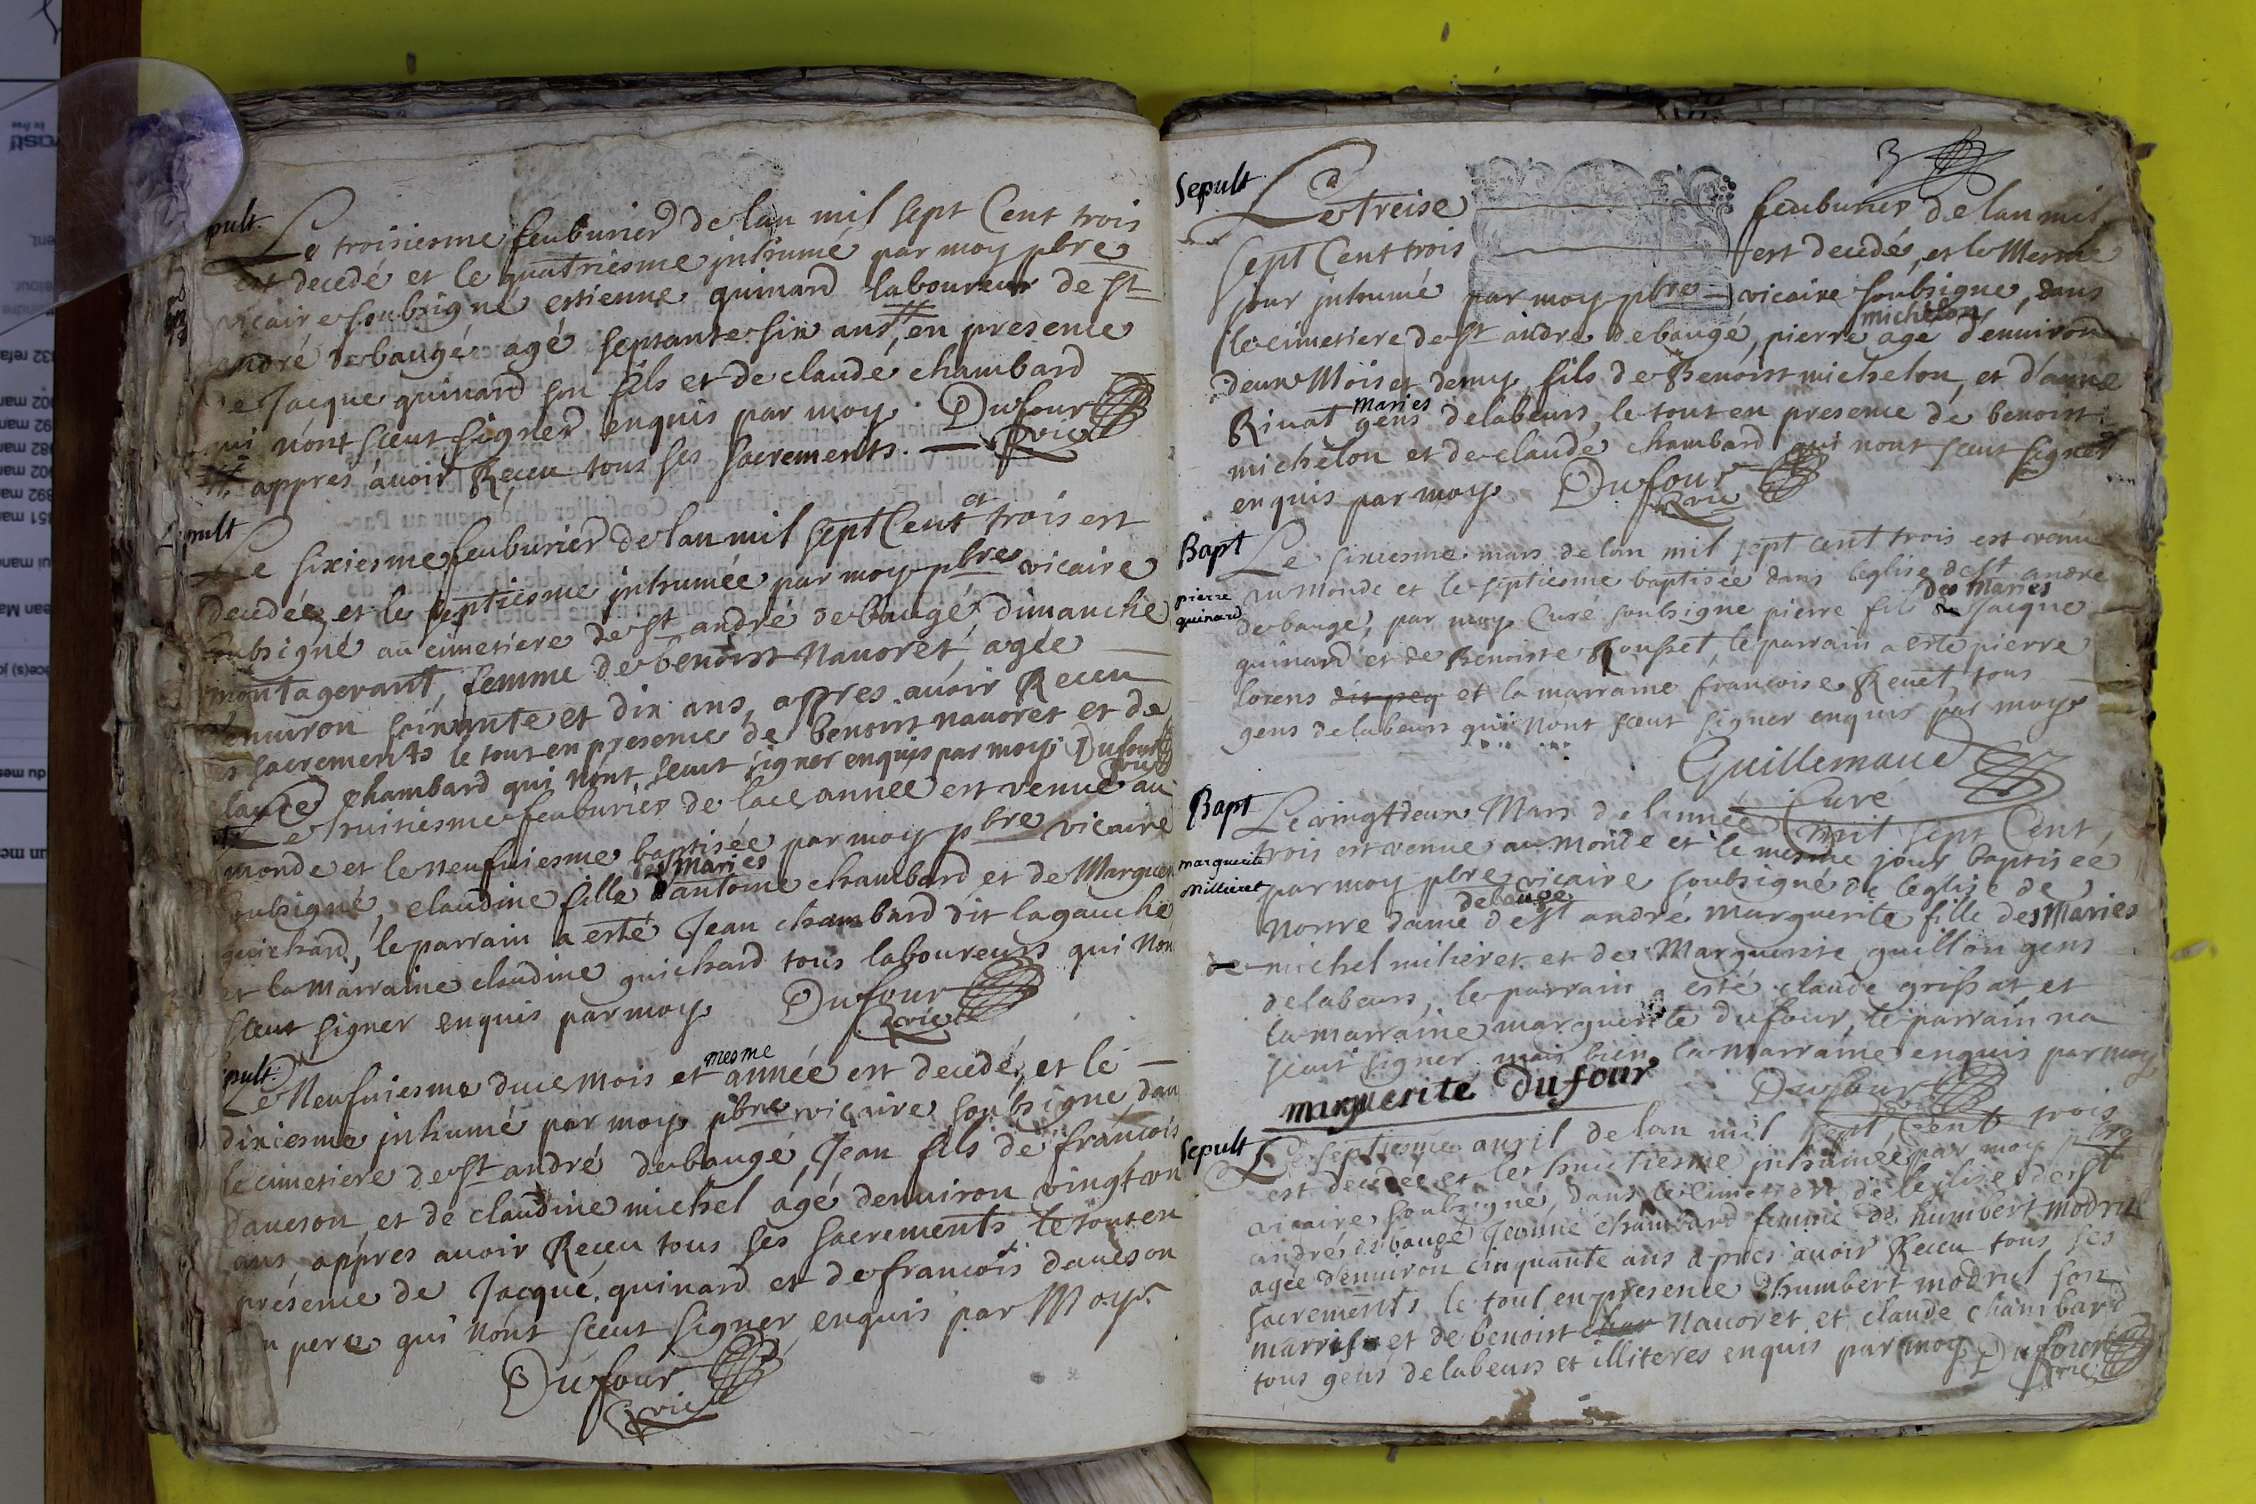 pult.
Le troisiesme feuburier de lan mil sept Cent trois
est decedé et le quatriesme inhumé par moy pbre
vicaire soubsigne estienne quinard laboureur de st
andré de baugé agé septante six ans, en presence
de Jacque quinard son fils et de claude chambard
qui nont sceut signer enquis par moy. Dufour
vic
appres auoir Receu tous ses sacrements.
pult
Le sixiesme feuburier de lan mil sept Cent et trois est
decedée et le septiesme inhumée par moy pbre vicaire
soubsigné au cimetiere de st andré de baugé, dimanche
montagerant, femme de benoist Nauoret, agée
denuiron soixante et dix ans, appres auoir Receu
sacrements le tout en presence de benoist nauoret et de
claude chambard qui nont sceut signer enquis par moy Dufour
vic
Le huitiesme feuburier de lace année est venue au
monde et le neufuiesme baptisée par moy pbre vicaire
soubsigné, claudine fille des Maries dantoine chambard et de Marguer
guichard, le parrain a esté Jean chambard dit lagauche
et la Marraine claudine guichard tous laboureurs qui Non
sceut signer enquis par moy Dufour
vic
pult.
Le Neufuiesme duce mois et mesme année est decedé, et le
dixiesme inhumé par moy pbre vicaire soubsigne dan
le cimetiere de st andré de baugé, Jean fils de francois
daueson, et de claudine michel agé denuiron vingt
ans, appres auoir Receu tous ses sacrements le tout en
presence de Jacque quinard et de francois daueson
n pere qui Nont sceut signer enquis par Moy
Dufour
vic
3
Sepult
Le treise feuburier de lan mil
sept Cent trois est decedé, et le Mesme
jour inhumé par moy pbre vicaire soubsigne, dans
le cimetiere de st andre de baugé, pierre michelon agé denuiron
deux Mois et demy fils de Benoist michelon, et danne
Riuat maries gens delabeurs, le tout en presence de benoist
michelon et de claude chambard qui nont sceut signer
enquis par moy Dufour
vic
Bapt
pierre
quinard
Le sixiesme mars de lan mil sept cent trois est venu
au Monde et le septiesme baptisée dans leglise de st andre
de baugé, par moy Curé soubsigne pierre fils des Maries Jacque
quinard et de Benoiste Rousset, le parrain a esté pierre
lorens dit peg et la marraine francoise Reuet, tous
gens delabeurs qui Nont sceut signer enquis par moy
Guillemaud
Curé
Bapt
marguerite
Millieret
Le vingtdeux Mars de lannée mil sept Cent
trois est venue au Monde et le mesme jour baptisée
par moy pbre vicaire soubsigné de leglise de
Nostre dame de st andré de baugé Marguerite fille des Maries
de michel milieret et de Marguerite guillon gens
delabeurs, le parrain a esté claude grissat et
la marraine marguerite dufour, le parrain na
sceut signer mais bien la marraine enquis par moy
marguerite Dufour Dufour
Sepult
Le septiesme auril de lan mil sept Cent trois
est decedée et le huictiesme inhumée par moy pbre
vicaire soubsigné, dans le cimetiere de leglise de st
andré de baugé Jeanne chambard femme de humbert modrul
agée denuiron cinquante ans apres auoir Receu tous ses
sacrements le tout en presence dhumbert modrul son
marrit et de benoist Nauoret et claude chambard
tous gens delabeurs et illiteres enquis par moy Dufour
vic